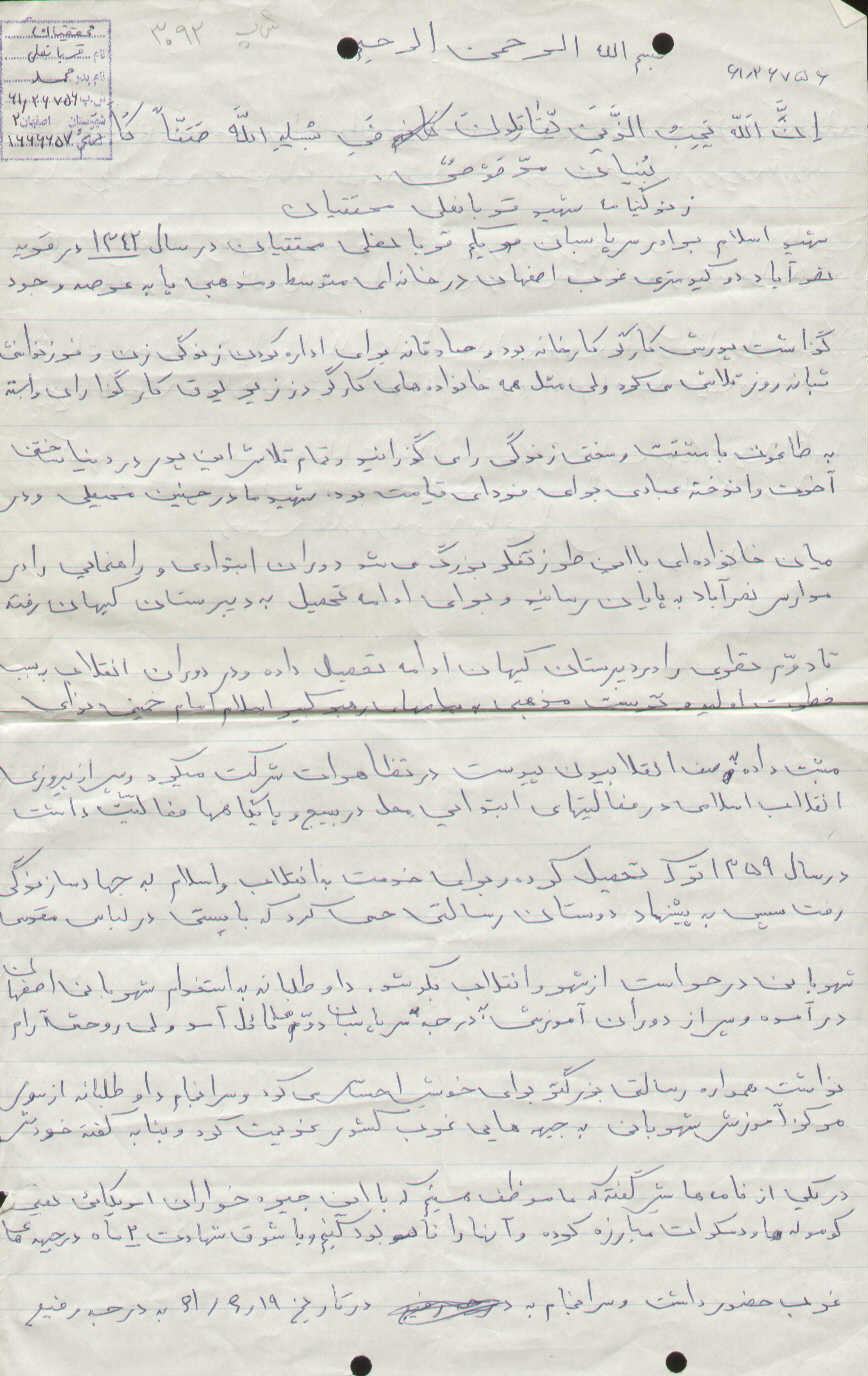 محققیان
نام قربانعلی
نام پدر محمد
اصفهان ۲
۳۰۹۲
بسم الله الرحمن الرحیم
۶۱٫۲۶۷۵۶
اِنَّ اللّهَ یُحِبُّ الَّذینَ یُقاتِلونَ فی سَبیلِهِ اللّهِ صَفّاً کَا
بُنیان مرصوص
زندگینامه شهید قربانعلی محققیان
شهید اسلام برادر سرپاسبان یکم قربانعلی محققیان در سال ۱۳۴۲ در قریه
نصرآباد دو کیلومتری غرب اصفهان در خانه‌ای متوسط و مذهبی پا به عرصه وجود
گذاشت پدرش کارگر کارخانه بود و صادقانه برای اداره کردن زندگی زن و فرزندانش
شبانه روز تلاش می کرد ولی مثل همه خانواده های کارگر در زیر یوق کارگذارای وابسته
به طاغوت با مشقت و سختی زندگی را می گذرانید و تمام تلاش این پدر در دنیا
آخرت و اندوخته عبادی برای فردای قیامت بود. شهید ما در چنین محیطی و در
میان خانواده‌ای با این طرز تفکر بزرگ می شد دوران ابتدایی و راهنمایی را در
مدارس نصرآباد به پایان رسانید و برای ادامه تحصیل به دبیرستان کیهان رفته
تا دوّم نظری را در دبیرستان کیهان ادامه تحصیل داده و در دوران انقلاب به سبب
فطرت اولیه و تربیت مذهبی به پیامهای رهبر کبیر اسلام امام خمینی ندای
مثبت داده به صف انقلابیون پیوست در تظاهرات شرکت میکرد و پس از پیروزی
انقلاب اسلامی در فعالیتهای ابتدایی محل در بسیج و پایگاهها فعالیّت داشت
در سال ۱۳۵۹ ترک تحصیل کرده و برای خدمت به انقلاب و اسلام به جهاد سازندگی
رفت سپس به پیشنهاد دوستان رسالتی حس کرد که بایستی در لباس مقدس
شهربانی در حراست از شهر و انقلاب بکوشد. داوطلبانه به استخدام شهربانی اصفهان
در آمده و پس از دوران آموزشی به درجه سرپاسبان دوّم نائل آمد ولی روحش آرام
نداشت همواره رسالتی بزرگتر برای خویش احساس می کرد و سرانجام داوطلبانه از سوی
مرکز آموزش شهربانی به جبهه هایی غرب کشور عزیمت کرد و بنا به گفته خودش
در یکی از نامه هایش گفته که ما موظف هستیم که با این جیره خواران امریکائی یعنی
کومله ها و دمکرات مبارزه کرده و آنها را نابود کنیم و با شوق شهادت ۲ ماه در جبهه های
غرب حضور داشت و سرانجام به در تاریخ ۶۱/۶/۱۹ به درجه رفیع